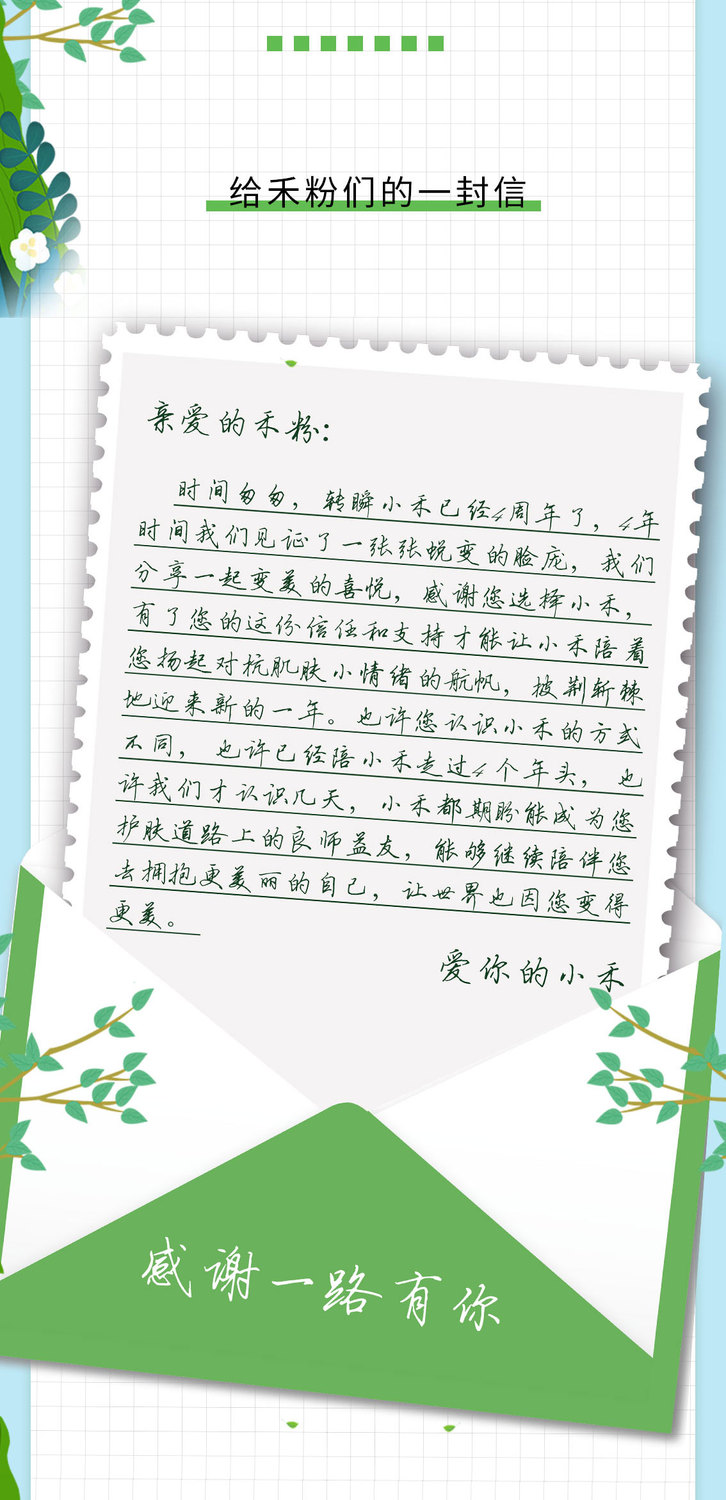 给禾粉们的一封信
亲爱的禾粉：
时间匆匆，转瞬小禾已经4周年了，4年
时间我们见证了一张张蜕变的脸庞，我们
分享一起变美的喜悦，感谢您选择小禾，
有了您的这份信任和支持才能让小禾陪着
您扬起对抗肌肤小情绪的航帆，披荆斩棘
地迎来新的一年。也许您认识小禾的方式
不同，也许已经陪小禾走过4个年头，也
许我们才认识几天，小禾都期盼能成为您
护肤道路上的良师益友，能够继续陪伴您
去拥抱更美丽的自己，让世界也因您变得
更美。
爱你的小禾
感谢一路有你